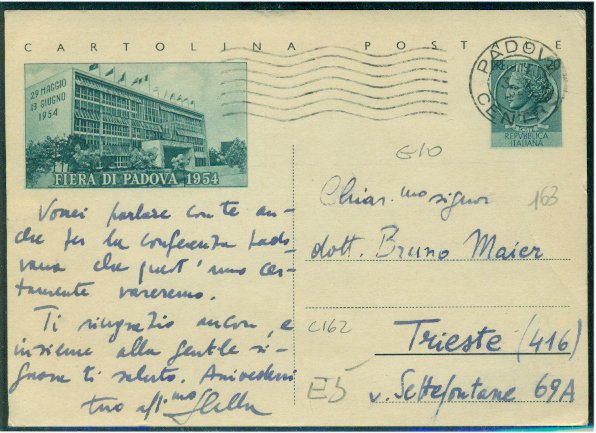 CARTOLINA POSTALE
29 MAGGIO
13 GIUGNO
1954
FIERA DI PADOVA 1954
PADOVA
CENTRO
20
REPVBBLICA
ITALIANA
G10
163
Vorrei parlare con te an-
che per la conferenza pado-
vana che quest'anno cer-
tamente vareremo.
Ti ringrazio ancora, e
insieme alla gentile si-
gnora ti saluto. Arrivederci
tuo aff.mo
Chiar.mo signor
dott. Bruno Maier
C162
Trieste (416)
E5
v. Settefontane 69A